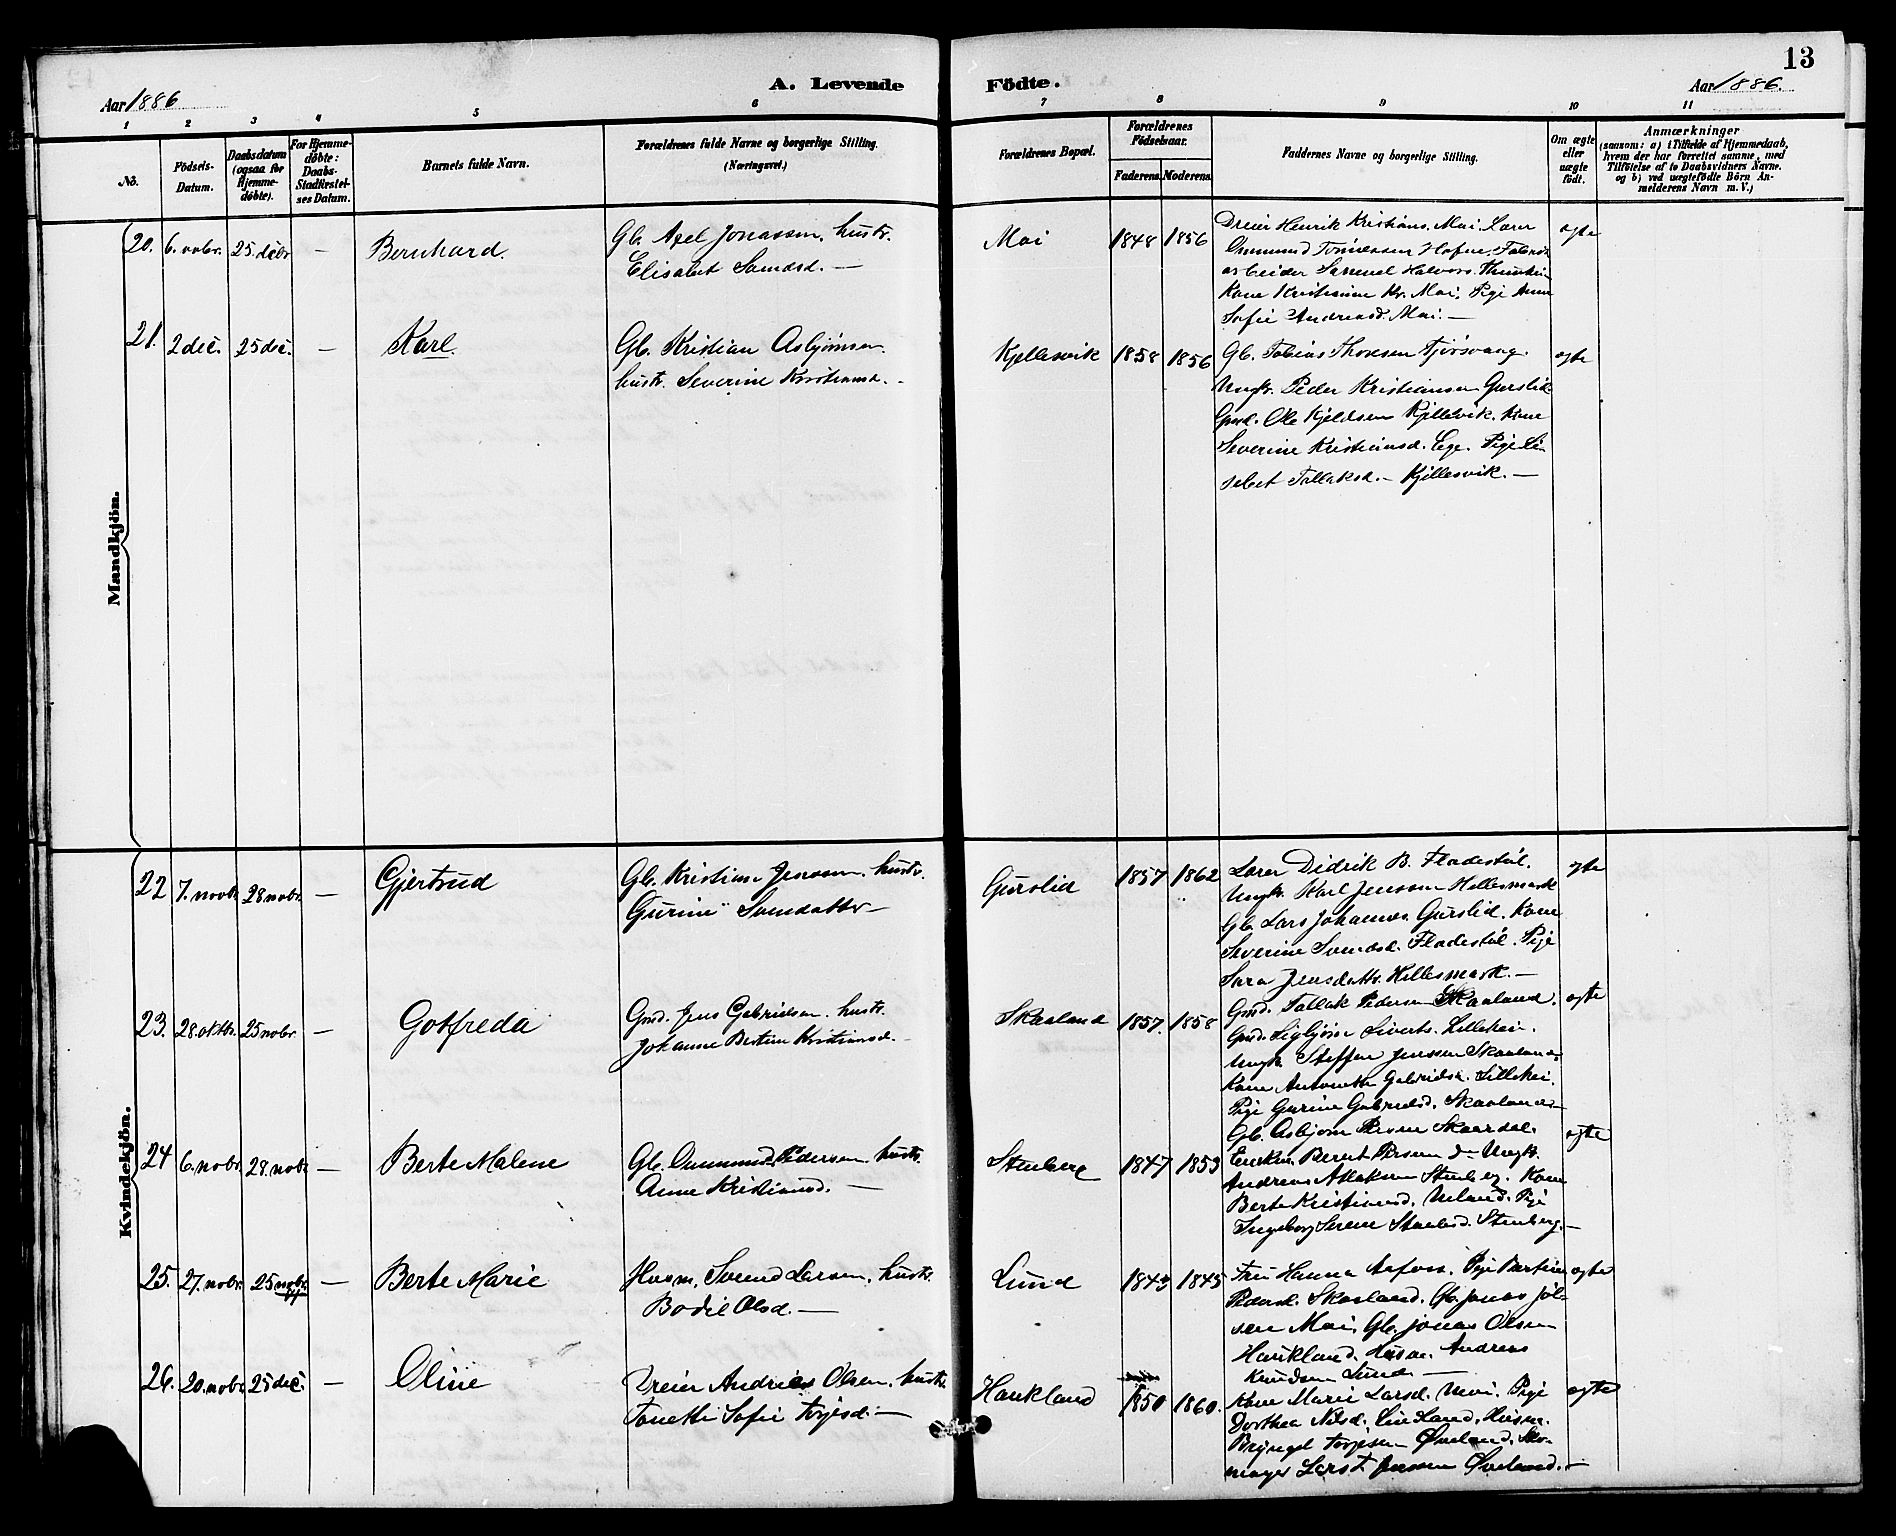 13
A. Levende Födte.
Aar 1886
Aar 1886.
1 2 3 4 5 6 7 8 9 10 11
No.
Födsels-Datum.
Daabsdatum (ogsaa for Hjemme-döbte).
For Hjemme-döbte: Daabs-Stadfæstel-ses Datum.
Barnets fulde Navn.
Forældrenes fulde Navne og borgerlige Stilling. (Næringsvei.)
Forældrenes Bopæl.
Forældrenes Födselsaar.
Faderens. Moderens.
Faddernes Navne og borgerlige Stilling.
Om ægte eller uægte födt.
Anmærkninger
(saasom: a) i Tilfælde af Hjemmedaab,
hvem der har forrettet samme, med
Tilföielse af to Daabsvidners Navne.
og b) ved uægtefödte Börn An-
melderens Navn m. V.)
Mandkjön.
20. 6. nobr. 25. decbr — Bernhard.
Gb. Axel Jonassen, hustr.
Elisabet Samdsd. —
Moi 1848 1856
Dreier Henrik Kristians. Moi. Lærer
Omund Tönessen Hofne, Fabrik
arbeider Samuel Halvors.
Kone Kristianne Kr. Moi, Pige Anne
Sofie Andreasd. Moi. —
ægte
21. 2 dec. 25 dec. — Karl.
Gb. Kristian Asbjörnsen.
hustr. Severine Kristiansd. -
Kjellesvik 1858 1856
Gb. Tobias Thoresen Tjörsvaag.
Ungk. Peder Kristiansen Gurslid
Gmd. Ole Kjeldsen Kjellesvik. Kone
Severine Kristiansd. Ege. Pige Li-
sebet Tollaksd. — Kjellesvik. —
ægte
Kvindekjön.
22 7. novbr. 28 nobr. — Gjertrud
Gb. Kristian Jenssen, hustr.
Gurine Svendsdattr —
Gurslid 1857 1862
Lærer Didrik B. Fladestöl.
Ungk. Karl Jenssen Hellesmark
Gb. Lars Johannes. Gurslid. Kone
Severine Svendsd. Fladestöl. Pige
Sara Jensdattr. Hellesmark. —
ægte
23. 28. oktbr. 25 nobr. — Gotfreda
Gmd. Jens Gabrielsen. hustr.
Johanne Bertine Kristiansd. -
Skaaland 1857. 1858
Gmd. Tallak Pedersen Skaaland.
Gmd. Sigbjörn Siverts. Lillehei.
Ungk. Steffen Jenssen Skaaland
Kone Antonette Gabrielsd. Lillehei.
Pige Gurine Gabrielsd. Skaaland —
ægte
24 6. nobr. 28. nobr. — Berte Malene
Gb. Ommund Pedersen. hustr.
Anne Kristiansd. —
Stenberg 1847 1853
Gb. Asbjörn Persen Skaardal.
Enken Beret Persen d— Ungk.
Andreas Aslaksen Stenberg. Kone
Berte Kristiansd. Ueland. Pige
Ingeborg Serene Stenberg. —
ægte
25. 27. nobr. 25 nobr. — Berte Marie
Husm. Svend Larsen, hustr.
Bodil Olsd. —
Lund 1843 1845
Fru Hanna Pige Bertine
Pedersd. Skaaland. Gb. Jonas Jöl-
sen Moi, Gb. Jonas Olsen
Haukland. Husm. Andreas
Knudsen Lund. —
ægte
26. 20. nobr. 25 dec. — Oline
Dreier Andreas Olsen. hustr.
Tonette Sofie Torjesd. —
Haukland 1850 1860.
Kone Marie Larsd. Moi. Pige
Dorthea Nilsd. Lindland. Husm.
Bryngel Torjesen Öveland. Sko-
mager Lars T. Jenssen Öveland. —
ægte